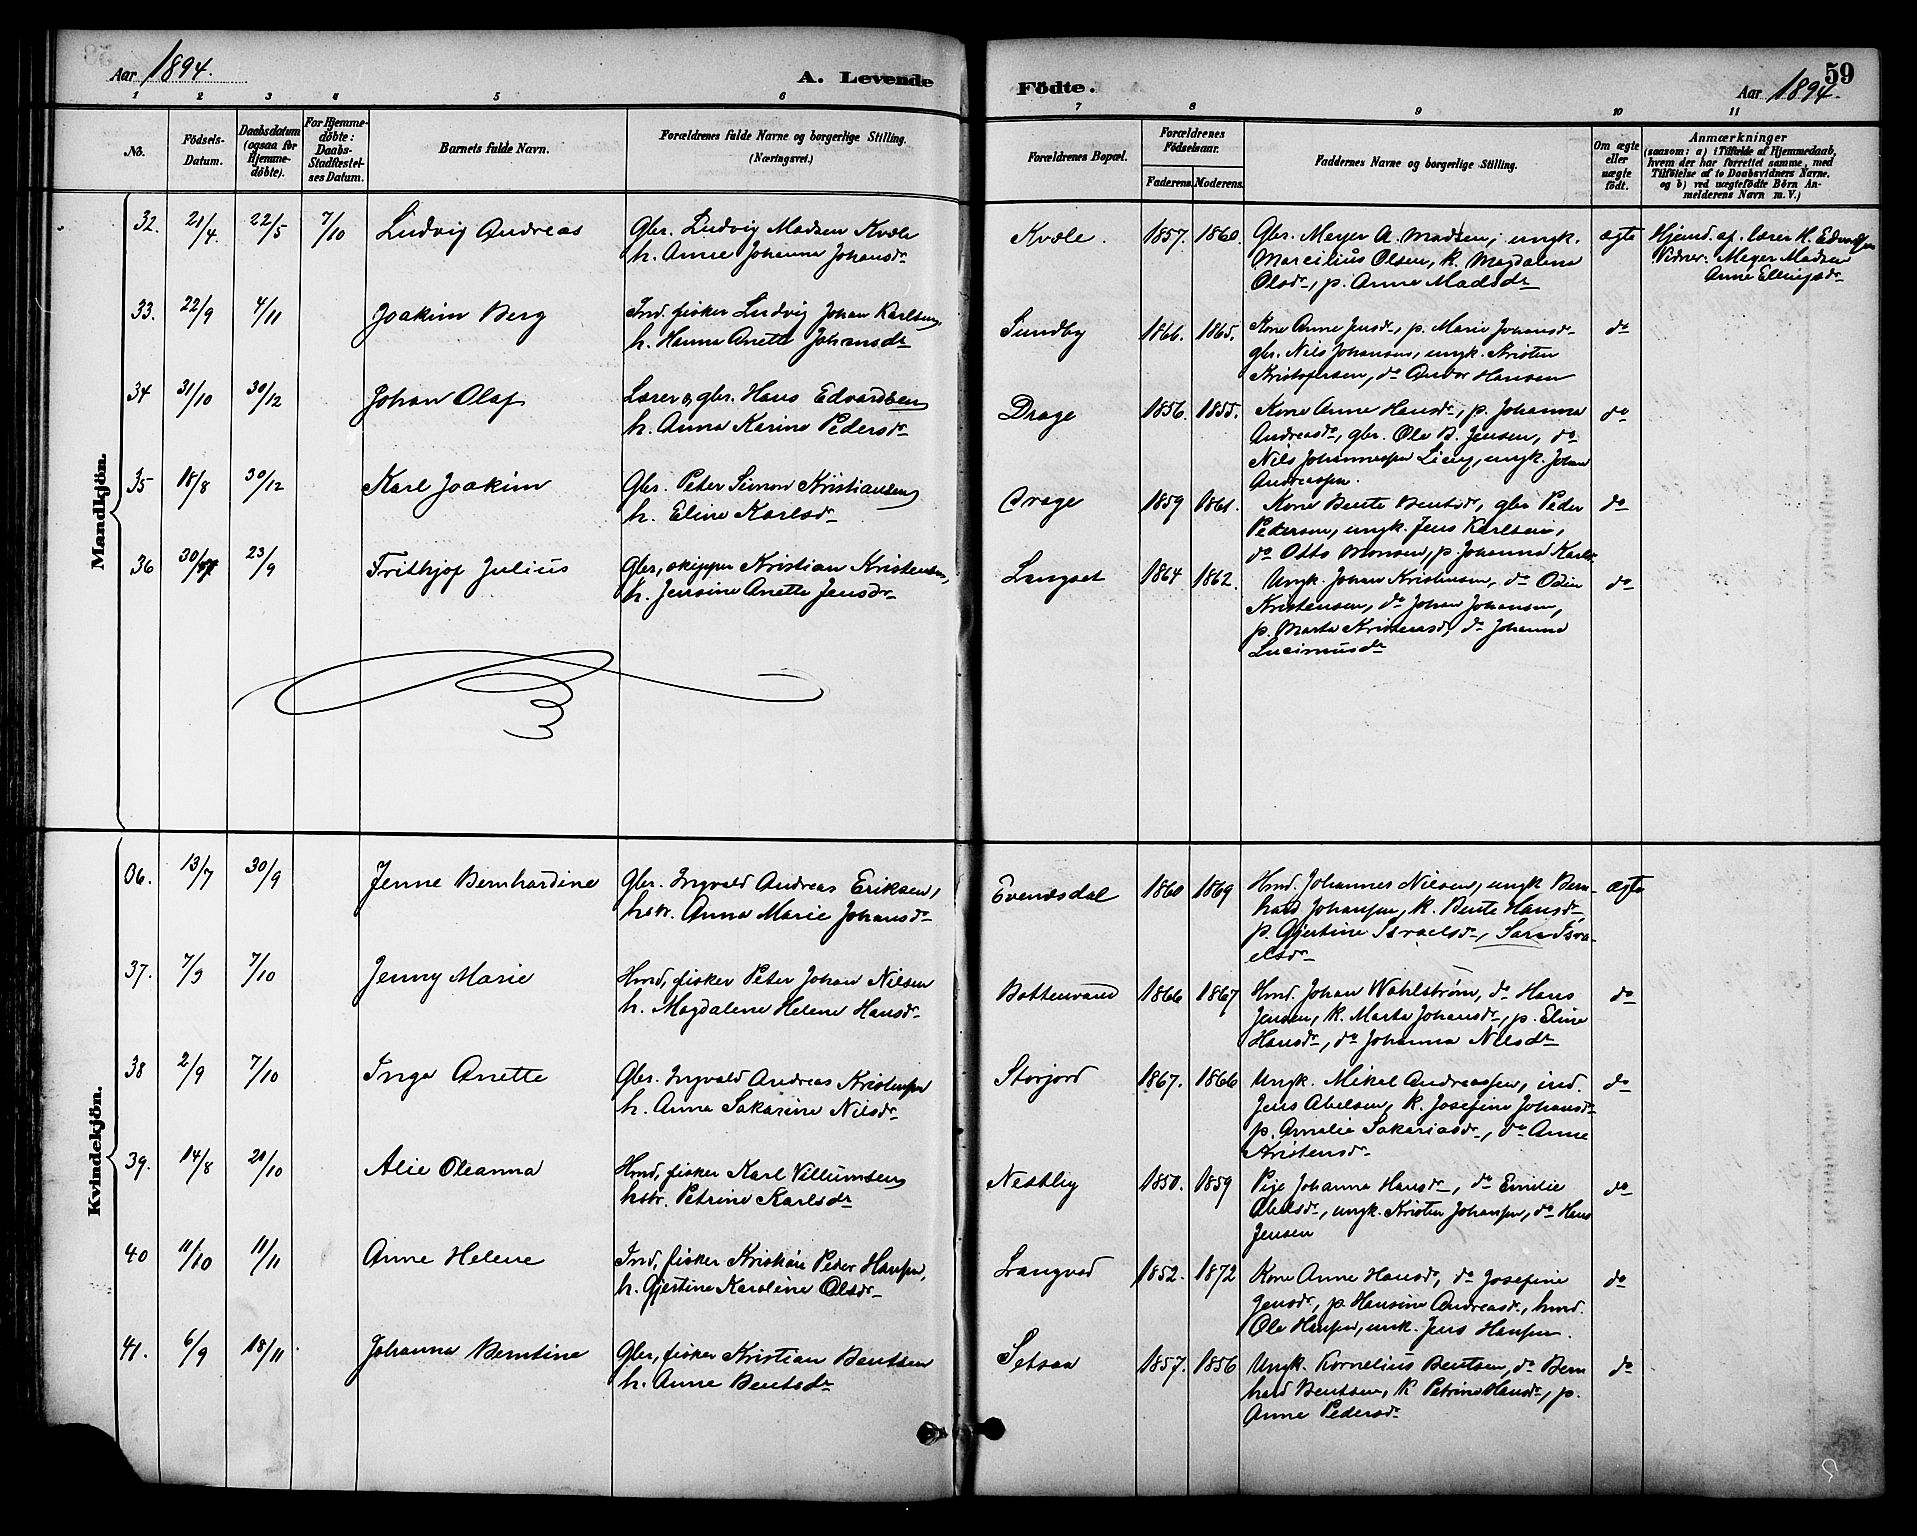 59
Aar 1894.
A. Levende
Födte.
Aar 1894.
1 2 3 4 5 6 7 8 9 10 11
No.
Födsels-
Datum.
Daabsdatum
(ogsaa for
Hjemme-
döbte).
For Hjemme-
döbte:
Daabs-
Stadfæstel-
ses Datum.
Barnets fulde Navn.
Forældrenes fulde Navne og borgerlige Stilling.
(Næringsvei.)
Forældrenes Bopæl.
Forældrenes
Födselsaar.
Faderens. Moderens.
Faddernes Navne og borgerlige Stilling.
Om ægte
eller
uægte
födt.
Anmærkninger
(saasom: a) i Tilfælde af Hjemmedaab,
hvem der har forrettet samme, med
Tilföielse af to Daabsvidners Navne,
og b) ved uægtefödte Börn An-
melderens Navn m. V.)
Mandkjön.
32. 21/4. 22/5 7/10 Ludvig Andreas
Gbr. Ludvig Madsen Kvæle
h. Anne Johanna Johansdr
Kvæle. 1857. 1860.
Gbr. Meyer A. Madsen, ungk.
Marcilius Olsen, k. Magdalena
Olsdr, p. Anne Madsdr
ægte
Hjemd. af lærer H. Edvardsen
Vidner: Meyer Madsen
Anne Ellingsdr
33. 22/9 4/11 Joakim Berg
Ind. fisker Ludvig Johan Karlsen,
h. Hanna Anette Johansdr
Sundby 1866. 1865.
Kone Anne Jensdr, p. Marie Johansdr
gbr. Nils Johansen, ungk. Kristen
Kristofersen, do Andor Hansen
do
34 31/10 30/12 Johan Olaf
Lærer og gbr. Hans Edvardsen
h. Anna Karina Pedersdr
Drage 1856. 1855.
Kone Anne Hansdr, p. Johanna
Andreasdr, gbr. Ole B. Jensen, do
Nils Johannessen Lien, ungk. Johan
Andreassen.
do
35 18/8 30/12 Karl Joakim
Gbr. Peter Simon Kristiansen
h. Eline Karlsdr
Drage 1859 1861.
Kone Bente Bentsdr, gbr Peder
Pedersen, ungk. Jens Karlsen,
do Otto Monsen, p. Johanna Karlsdr
do
36 30/7 23/9 Frithjof Julius
Gbr, skipper Kristian Kristensen,
h. Jensine Anette Jensdr
Langset 1864 1862.
Ungk. Johan Kristensen, do Odin
Kristensen, do Johan Johansen,
p. Marta Kristensdr, do Johanna
Lucimusdr
do
Kvindekjön.
36. 13/7 30/9 Jenne Bernhardine
Gbr. Ingvald Andreas Eriksen,
hstr. Anna Marie Johansdr
Evenesdal 1860 1869
Hmd. Johannes Nilsen, ungk Bern-
hard Johansen, k. Bente Hansdr,
p. Gjertine Israelsdr, Sara Isra-
elsdr
ægte
37. 7/9 7/10 Jenny Marie
Hmd, fisker Peter Johan Nilsen
h. Magdalene Helene Hansdr
Bottenvand 1866 1867
Hmd. Johan Wahlstrøm, do Hans
Jensen, k. Marta Johansdr, p. Eline
Hansdr, do Johanna Nilsdr
do
38 2/9 7/10 Inga Anette
Gbr. Ingvald Andreas Kristensen
h. Anna Sakarine Nilsdr
Storjord 1867. 1866
Ungk. Mikal Andreassen, ind.
Jens Abelsen, k. Josefine Johansdr
p. Amelie Sakariasdr, do Anne
Kristensdr
do
39. 14/8 21/10 Alie Oleanna
Hmd, fisker Karl Villumsen
hstr. Petrine Karlsdr
Nestby 1850. 1859
Pige Johanna Hansdr, do Emilie
Abelsdr, ungk. Kristen Johansen, do Hans
Jensen
do
40 11/10 11/11 Anne Helene
Ind, fisker Kristian Peder Hansen,
h. Gjertine Karoline Olsdr
Langvad 1852. 1872
Kone Anne Hansdr, do Josefine
Jensdr, p. Hansine Andreasdr, hmd.
Ole Hansen, ungk. Jens Hansen.
do
41. 6/9 18/11. Johanna Berntine
Gbr, fisker Kristian Bentsen
h. Anne Bentsdr
Setsaa 1857. 1856
Ungk. Kornelius Bentsen, do Bern
hard Bentsen, k Petrine Hansdr, p.
Anne Pedersdr
do